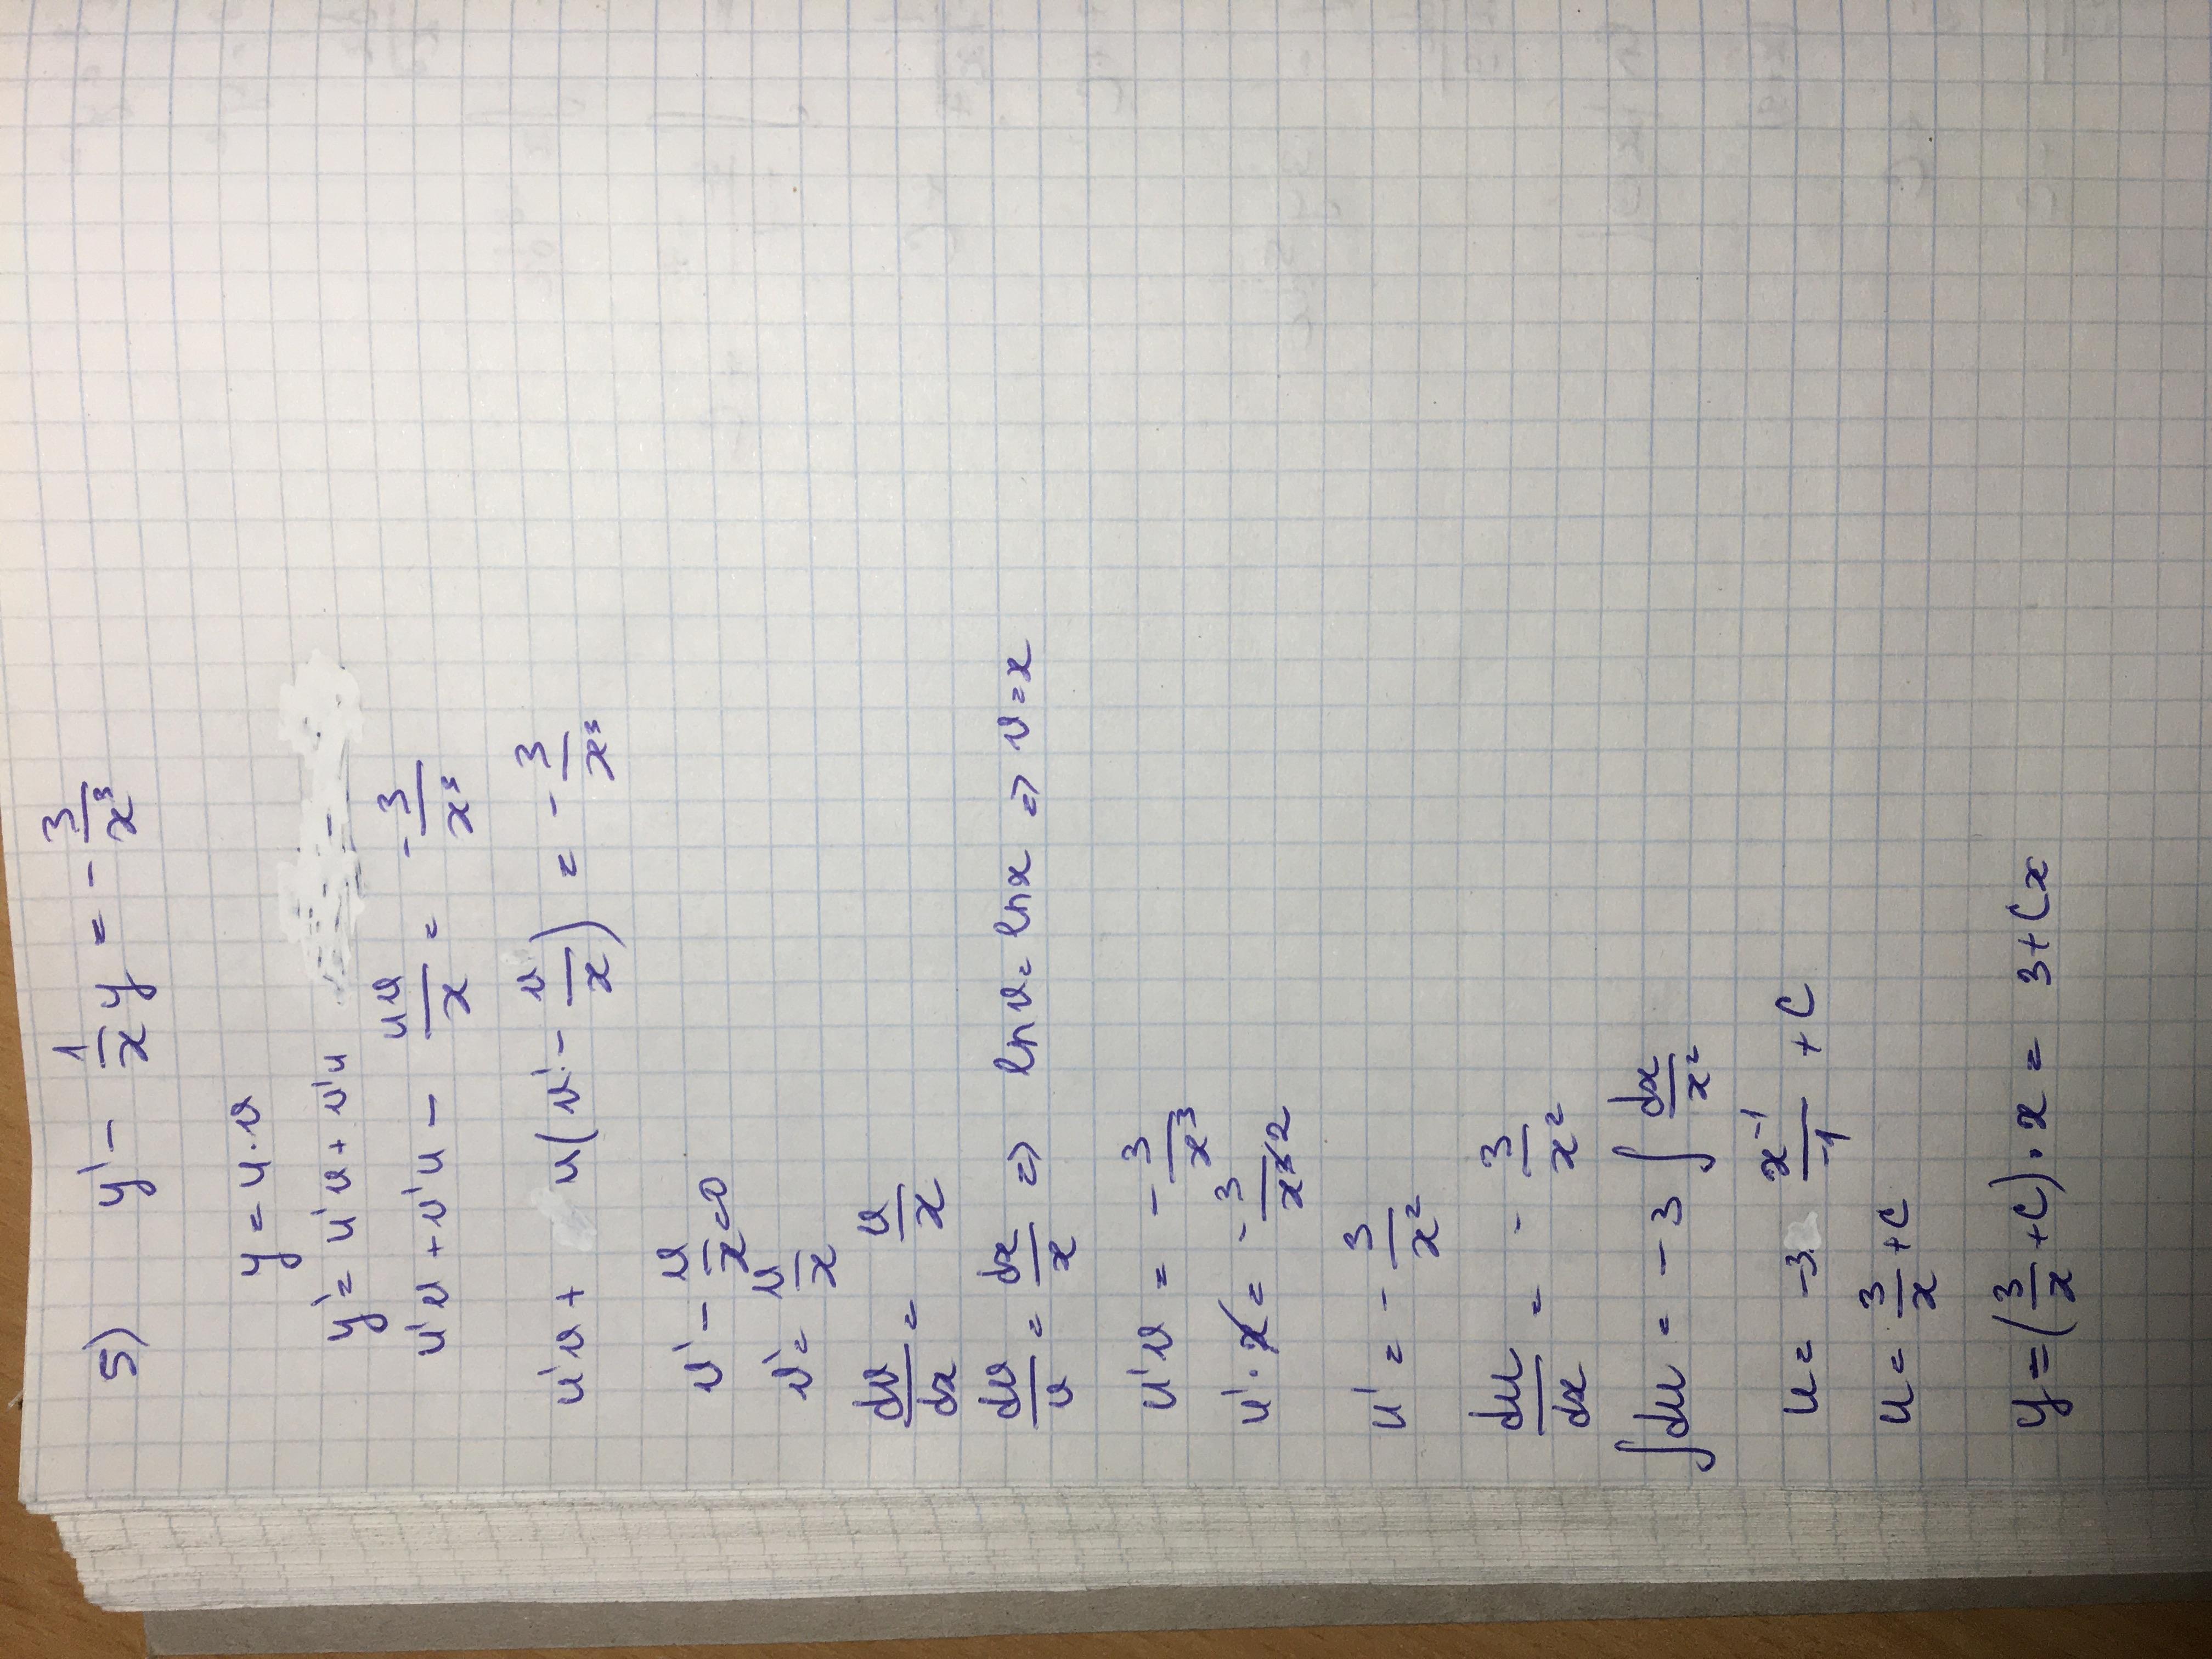 5) y' - 1/x y = - 3/x³
y = u · v
y' = u'v + v'u
u'v + v'u - uv/x = - 3/x³
u'v + u(v' - v/x) = - 3/x³
v' - v/x = 0
v' = v/x
dv/dx = v/x
dv/v = dx/x => ln v = ln x => v = x
u'v = - 3/x³
u' · x = - 3/x³ 2
u' = - 3/x²
du/dx = - 3/x²
∫du = - 3 ∫ dx/x²
u = -3 x⁻¹/-1 + C
u = 3/x + C
y = (3/x + C) · x = 3 + Cx